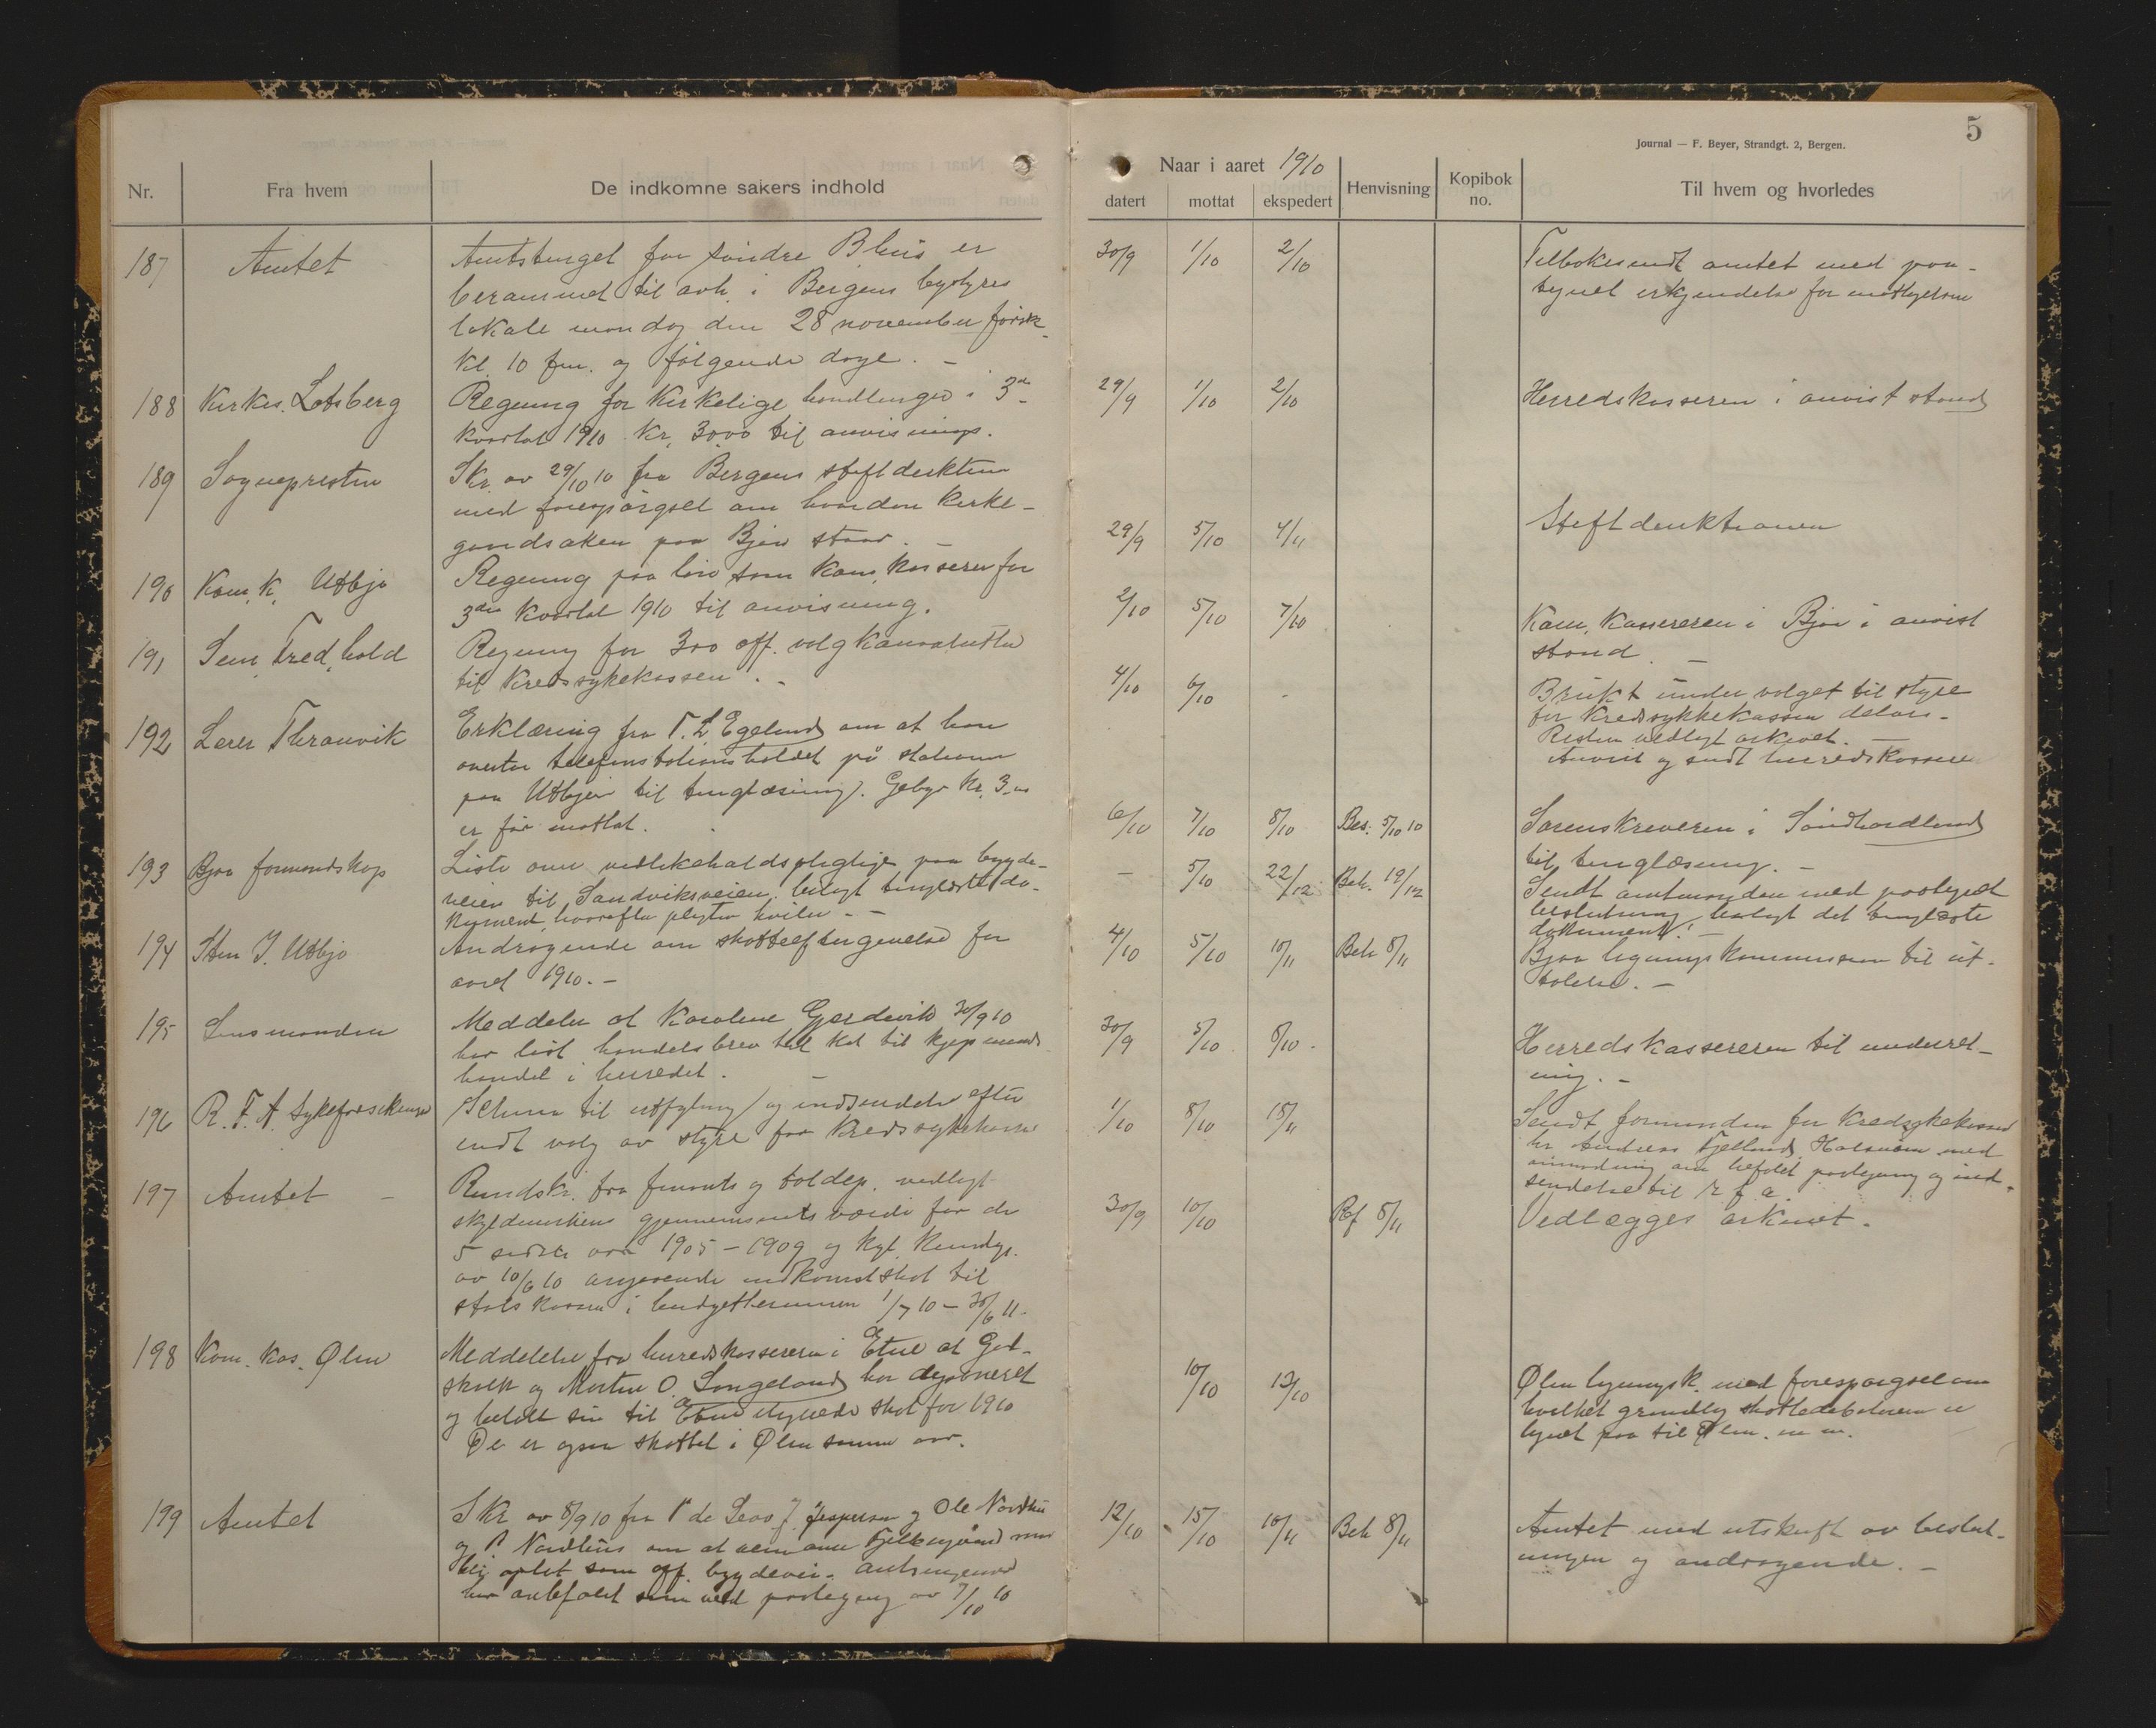 5
Journal — F. Beyer, Strandgt. 2, Bergen.
Nr.
Fra hvem
De indkomne sakers indhold
Naar i aaret 1910
datert
mottat
ekspedert
Henvisning
Kopibok no.
Til hvem og hvorledes
187 Amtet
Amtstinget for söndre Bhus er
berammet til avh. i Bergens bystyres
lokale mandag den 28 november förstk.
kl. 10 fm. og fölgende dage. –
30/9 1/10 2/10
Tilbakesendt amtet med paa-
tegnet erkjendelse for mottagelsen
188 Kirkes. Lotsberg
Regning for Kirkelige handlinger i 3de
kvartal 1910 kr. 30.00 til anvisning.
29/9 1/10 2/10
Herredskasseren i anvist stand
189 Sognepresten
Skr. av 29/10 10 fra Bergens stiftdirektion
med forespörgsel om hvordan kirke-
gaardsaken paa Bjoa staar. –
29/9 5/10 4/11
Stiftdirektionen
190 Kom. k. Utbjo
Regning paa lön som Kom. kasserer for
3die kvartal 1910 til anvisning.
2/10 5/10 7/10
Kom. Kassereren i Bjoa i anvist
stand. –
191 Sem. Fred.hald
Regning for 300 off. valgkonvolutter
til Kredssykekassen. –
4/10 6/10 -
Brukt under valget til styre
for Kredssykkekassen delvis.
Resten vedlagt arkivet. –
Anvist og sendt herredskasserer
192 Lerer Thranvik
Erklæring fra T. L. Egeland om at han
overtar telefonstationsholdet på stationen
paa Utbjoa til tinglæsning. Gebyr kr. 3.00
er før mottat.
6/10 7/10 8/10 Bes. 5/10 10
Sorenskriveren i Söndhordland
til tinglæsning. –
193 Bjoa formandskap
Liste over vedlikeholdspligtige paa bygde-
veien til Sandviksveien, bilagt tinglæste do-
kument, hvorefter pligten hviler. –
– 5/10 22/12 Beh. 19/12
Sendt amtmanden med paategnet
beslutning, bilagt det tinglæste
dokument. –
194 Sten J. Utbjo
Andragende om skatteeftergivelse for
aaret 1910. –
4/10 5/10 10/11 Beh 8/11
Bjoa ligningskommission til ut-
talelse. –
195 Lensmanden
Meddeler at Karoline Gjerdevik 30/9 10
har löst handelsbrev til kjøpmands
handel i herredet. –
30/9 5/10 8/10
Herredskassereren til underret-
ning. –
196 R. F. A. Sykeforsikringen
Schema til utfyldning og indsendelse efter
endt valg av styre for Kredssykekassen
1/10 8/10 15/11
Sendt formanden for Kredsykekassen
hr Andreas Fjelland, Halsnøen med
anmodning om befalet paategning og ind-
sendelse til r.f.a.
197 Amtet –
Rundskr. fra finants og toldep. vedlagt
skyldmarkens gjennemsnits værdi for de
5 sidste aar 1905 – 1909 og kgl. kundgj.
av 10/6 10 angaaende indkomstskat til
statskassen i budgetterminen 1/7 10 – 30/6 11.
30/9 10/10 Ref 8/11
Vedlægges arkivet.
198 Kom. kas. Ølen
Meddelelse fra herredskassereren i Etne at God-
skalk og Morten O. Langeland har
og betalt sin til Etne skat for 1910
De er ogsaa skattet i Ølen samme aar.
10/10 13/10
Ølen ligningsk. med forespørgsel om
hvilket grundlag er
lignet paa til Ølen. m m.
199 Amtet
Skr av 8/9 10 fra Jespersen og Ole Nordhus
og P Nordhus om at veien over
bli optat som off. bygdevei.
har anbefalet ved paategning av 7/10 10
12/10 15/10 10/11 Beh 8/11
Amtet med utskrift av beslut-
ningen og andragende. –